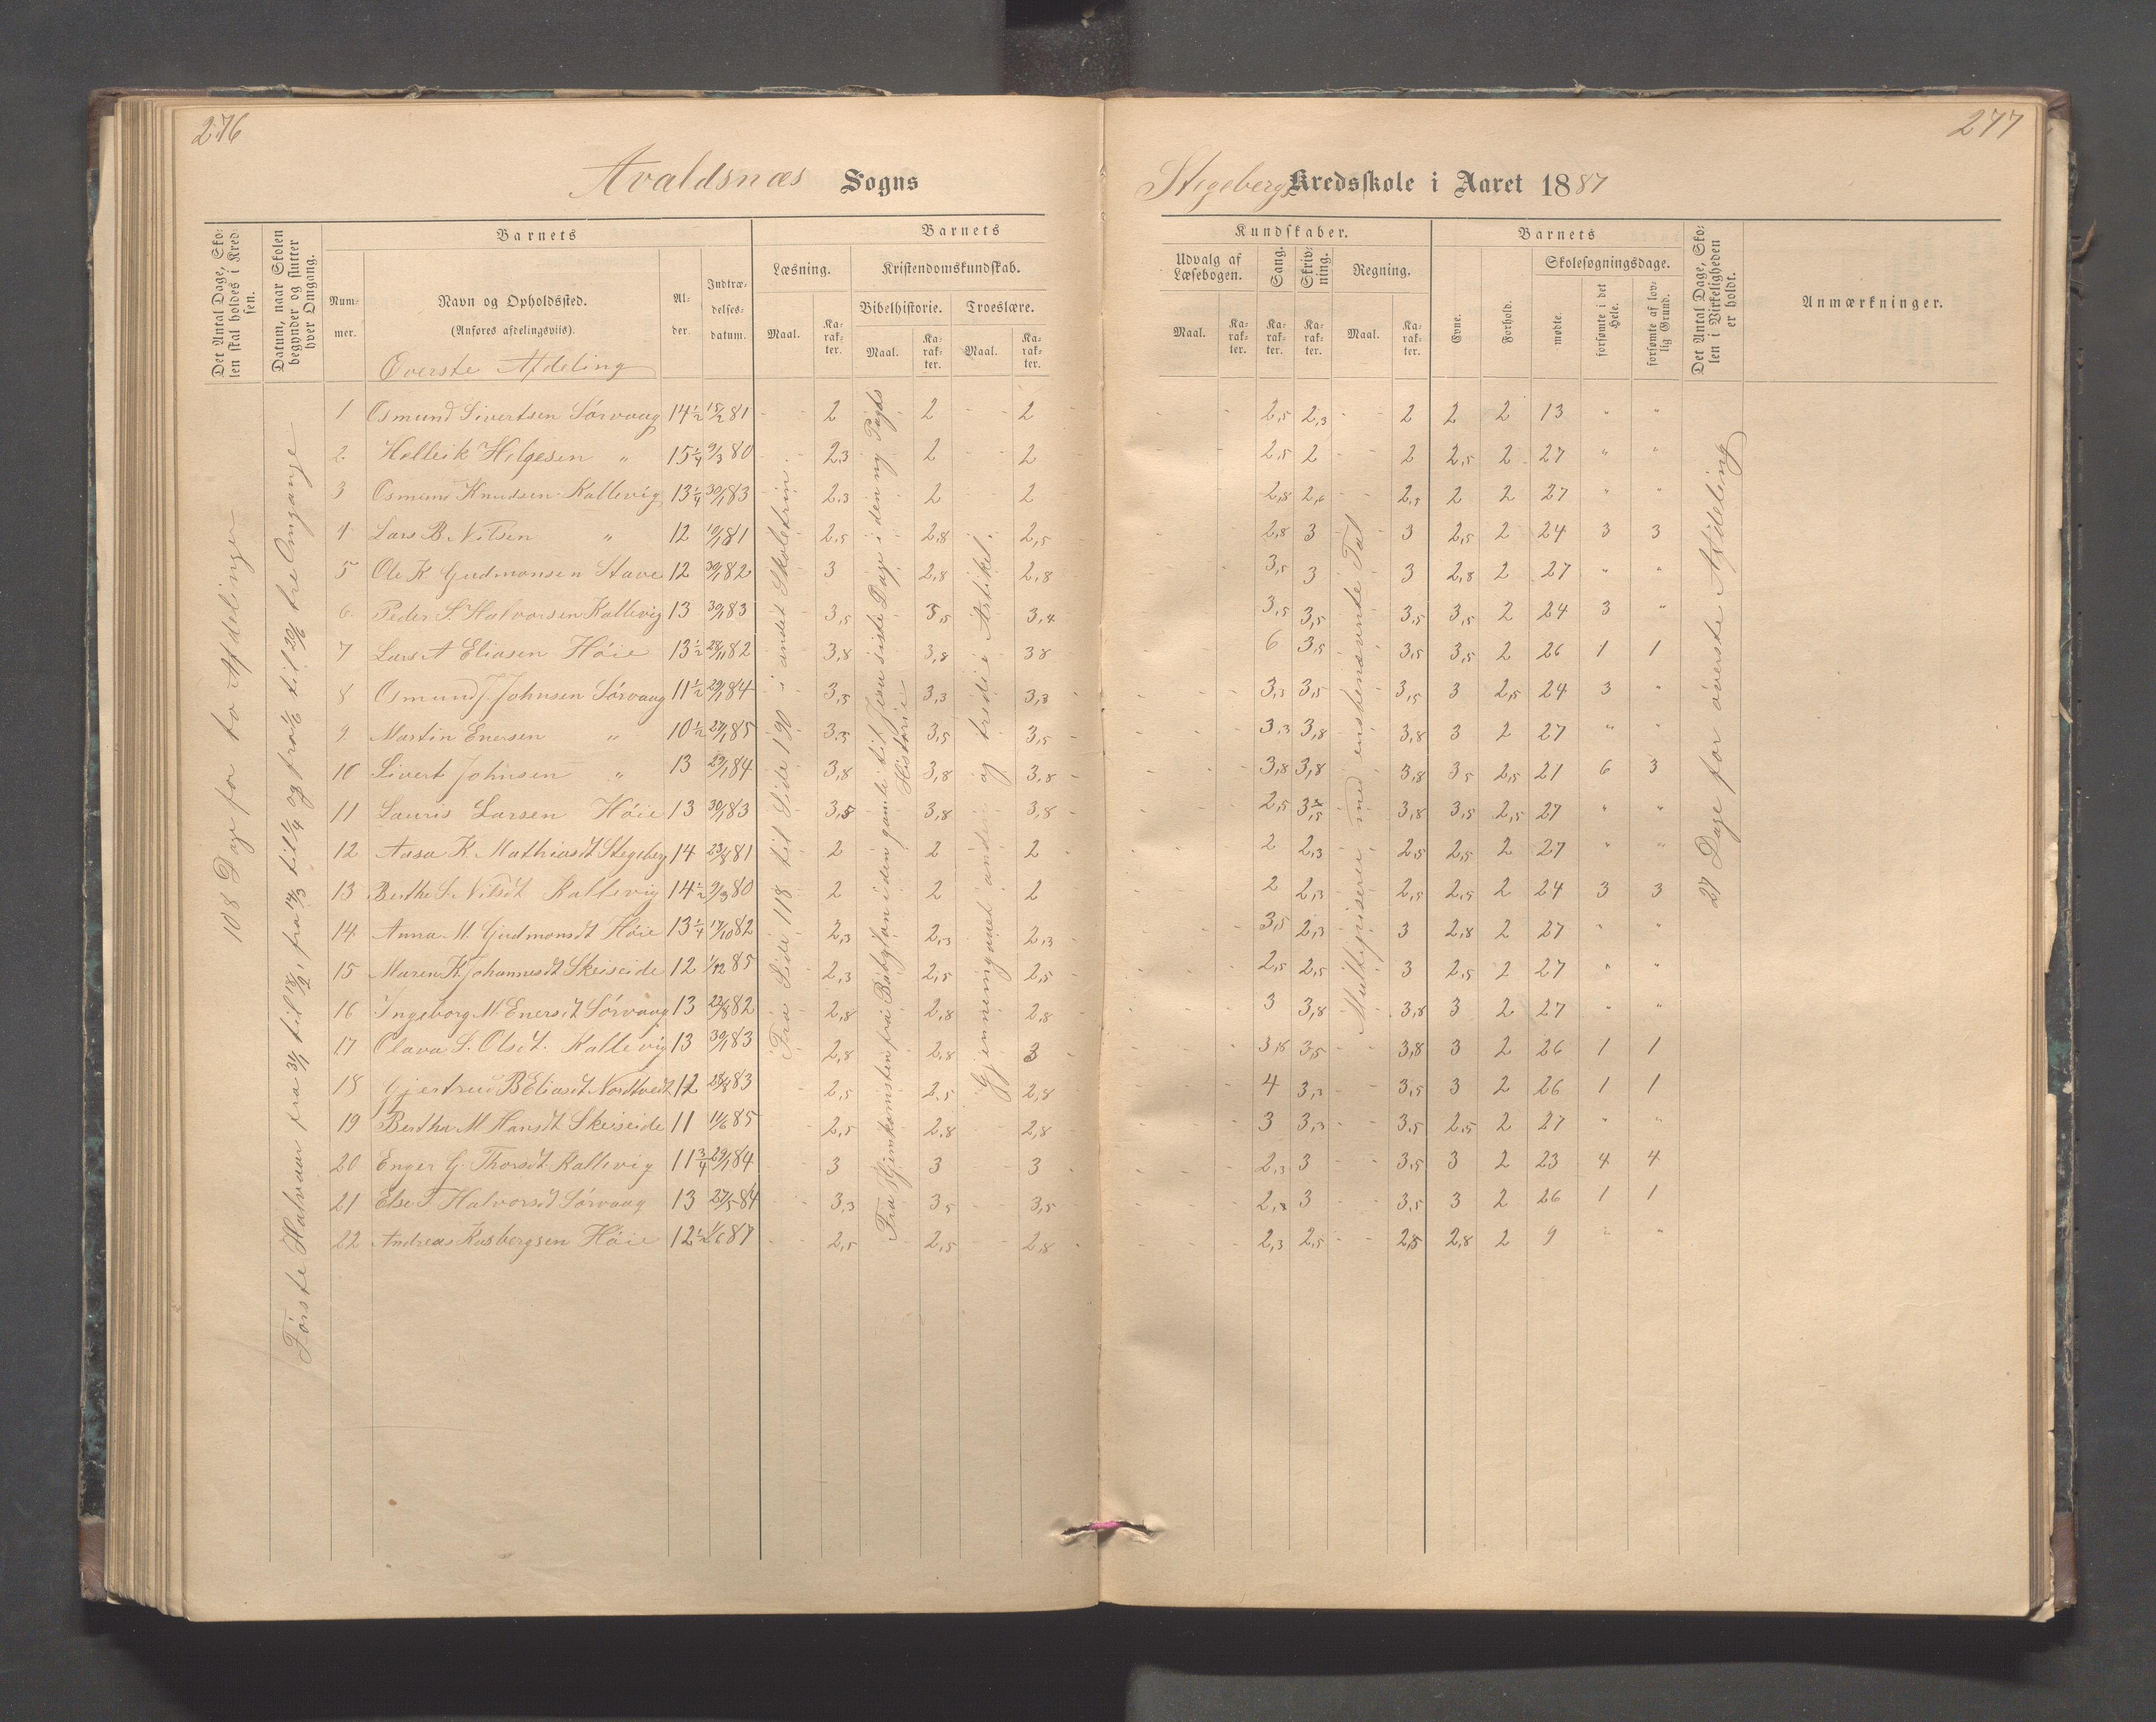 276
277
Avaldsnæs Sogns
Stegebergs Kredsskole i Aaret 1887
Det Antal Dage, Skolen skal holdes i Kredsen.
Datum, naar Skolen begynder og slutter hver Omgang.
Barnets
Barnets
Kundskaber.
Barnets
Det Antal Dage, Skolen i Virkeligheden er holdt.
Anmærkninger.
Nummer.
Navn og Opholdssted.
(Anføres afdelingsviis).
Alder.
Indtrædelsesdatum.
Læsning.
Kristendomskundskab.
Bibelhistorie.
Troeslære.
Maal.
Karakter.
Maal.
Karakter.
Maal.
Karakter.
Udvalg af Læsebogen.
Sang.
Skrivning.
Regning.
Maal.
Karakter.
Karakter.
Karakter.
Maal.
Karakter.
Evne.
Forhold.
Skolesøgningsdage.
mødte.
forsømte i det Hele.
forsømte af lovlig Grund.
Øverste Afdeling
108 Dage for to Afdelinger
Første Halvaar fra 31/1 til 18/2, fra 14/3 til 1/4 og fra 1/6 til 20/6 tre Omgange
Fra Side 118 til Side 190 i andet Skoletrin.
Fra Hjemkomsten fra Babylon i den gamle til Jesu sidste Dage i den ny Pagts Historie
Gjennemgaaet anden og tredie Artikel.
Multiplisere med ensbenævnte Tal
27 Dage for øverste Afdeling
1 Osmund Sivertsen Sørvaag 14 1/2 15/2 81 2 2 2 2,5 2,3 2 2 2 13 " "
2 Helleik Helgesen " 15 1/4 9/3 80 2,3 2 2 2,5 2 2 2,5 2 27 " "
3 Osmund Knudsen Kallevig 13 1/4 30/1 83 2,3 2 2 2,8 2,6 2,3 2 2 27 " "
4 Lars B. Nilsen " 12 10/1 81 2,5 2,8 2,5 2,8 3 3 2,5 2 24 3 3
5 Ole K. Gudmonsen Stave 12 30/1 82 3 2,8 2,8 3,5 3 3 2,8 2 27 " "
6 Peder S. Halvorsen Kallevig 13 30/1 83 3,5 3,5 3,4 3,5 3,5 3,5 3,5 2 24 3 "
7 Lars A Eliasen Høie 13 1/2 28/11 82 3,8 3,8 38 6 3,5 3,5 3,5 2 26 1 1
8 Osmund J. Johnsen Sørvaag 11 1/2 29/1 84 3,5 3,3 3,3 3,3 3,5 3,5 3 2,5 24 3 "
9 Martin Enersen " 10 1/2 27/1 85 3,5 3,5 3,5 3,3 3,8 3,8 3 2 27 " "
10 Sivert Johnsen " 13 29/1 84 3,8 3,8 3,8 3,8 3,8 3,8 3,5 2,5 21 6 3
11 Lauris Larsen Høie 13 30/1 83 3,8 3,8 3,8 2,5 3,5 3,8 3,5 2,5 27 " "
12 Aasa K. Mathiasdt Stegeberg 14 23/8 81 2 2 2 2 2,3 2,5 2,5 2 27 " "
13 Berthe S. Nilsdt Kallevig 14 1/2 9/3 80 2 2 2 2 2,3 2,5 2,5 2 24 3 3
14 Anna M. Gudmonsdt Høie 13 1/4 17/10 82 2,3 2,3 2,3 3,5 2,3 3 2,8 2 27 " "
15 Maren K. Johannesdt Skeiseide 12 1/12 85 2,3 2,5 2,5 2,5 2,5 3 2,5 2 27 " "
16 Ingeborg M. Enersdt Sørvaag 13 22/8 82 2,8 2,8 2,8 3 3,8 3,8 3 2 27 " "
17 Olava S. Olsdt. Kallevig 13 30/1 83 2,8 2,8 3 3,8 3,5 3,8 3 2 26 1 1
18 Gjertrud B Eliasdt Nordtvedt 12 28/8 83 2,5 2,5 2,8 4 3,3 3,5 3 2 26 1 1
19 Bertha M Hansdt Skeiseide 11 11/6 85 2,5 2,8 2,8 3 3,3 3,5 2,5 2 27 " "
20 Enger G. Thorsdt. Kallevig 11 3/4 29/1 84 3 3 3 2,3 3 3,5 3 2 23 4 4
21 Else T. Halvorsdt Sørvaag 13 27/5 84 3,3 3,5 3,5 2,3 3 3,5 3 2 26 1 1
22 Andreas Rasbergsen Høie 12 1/2 1/6 87 2,5 2,5 2,8 2,3 2,5 2,5 2,8 2 9 " "